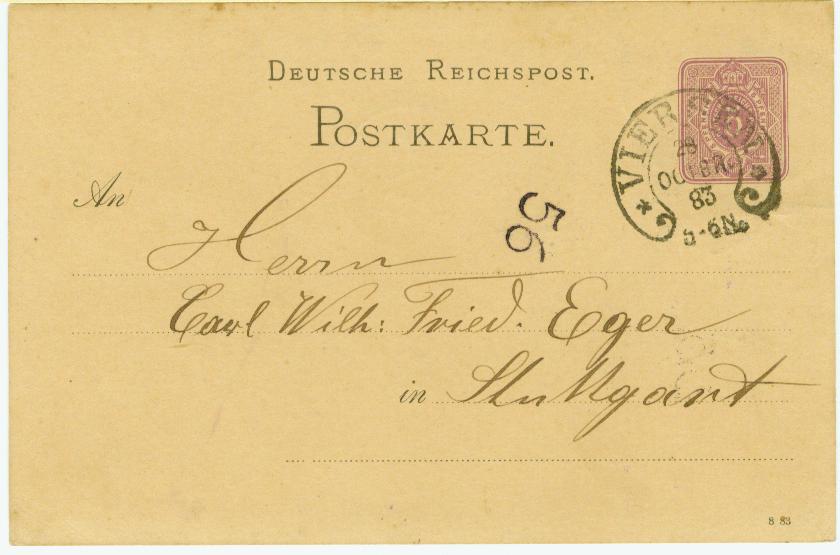 DEUTSCHE REICHSPOST.
POSTKARTE.
VIERSEN
28
OCTBR.
83
5-6N.
An
56
Herrn
Carl Wilh: Fried. Eger
in Stuttgart
8 83